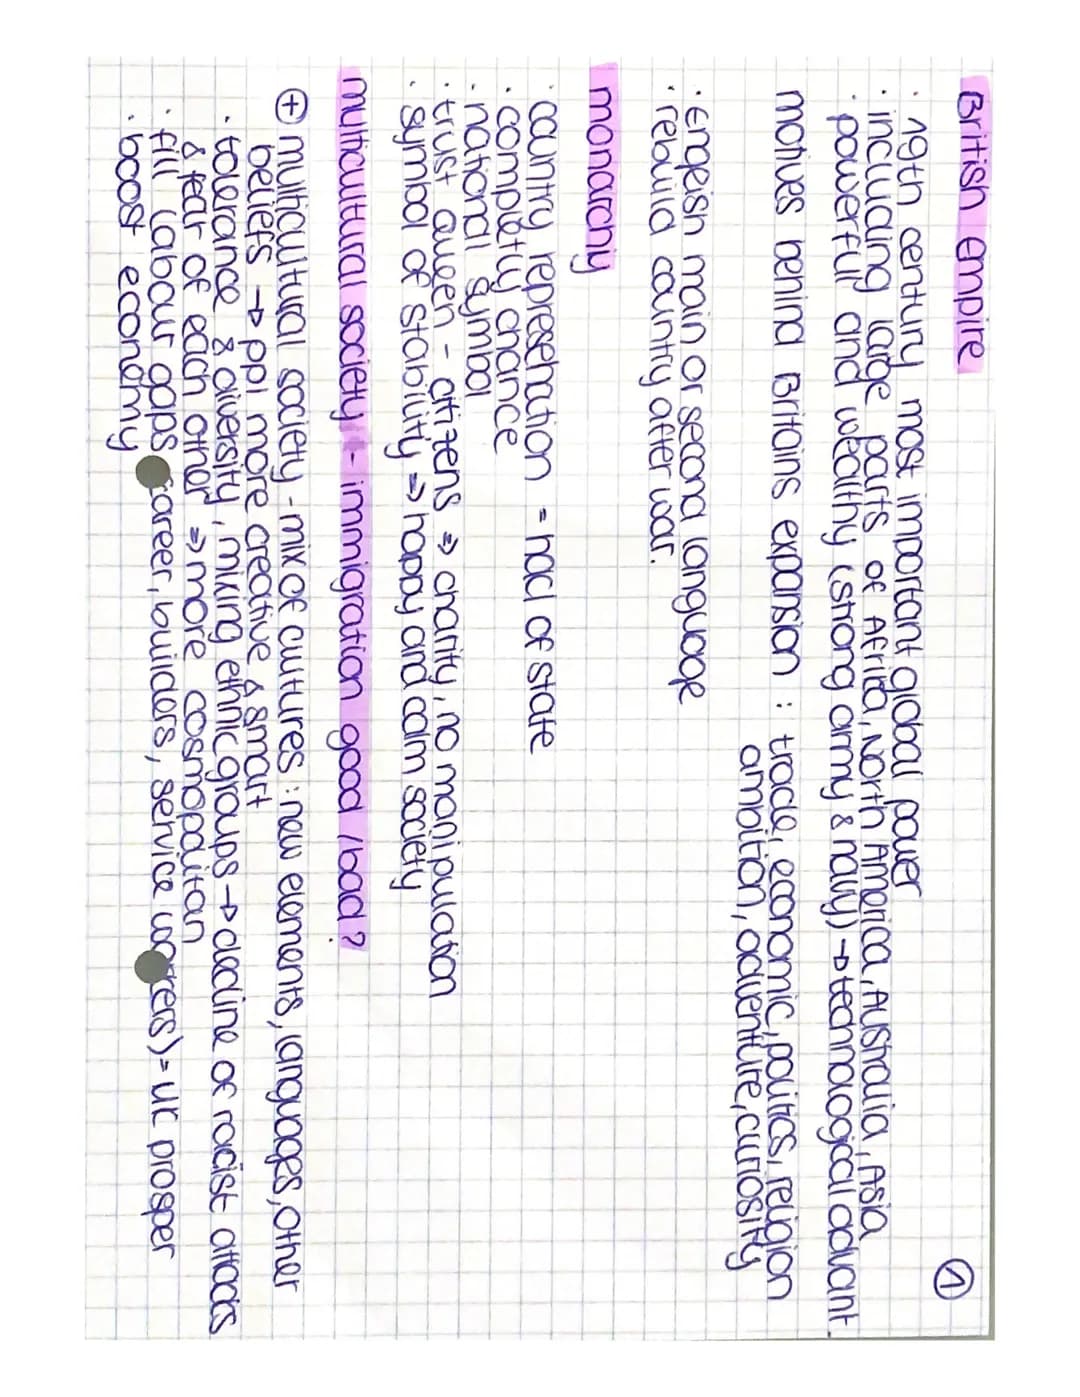 British empire
①
· 19th century most important global power
· including large parts of Africa, North America, Australia, Asia
· powerful and wealthy (strong army & navy) → technological advant
motives behind Britains expansion : trade, economic, politics, religion
ambition, adventure, curiosity
· English main or second language
· rebuild country after war.
monarchy
· country representation = had of state
· completly chance
· national symbol
· trust queen - citizens ⇒ charity, no manipulation
· symbol of stability ⇒ happy and calm society
multicultural society - immigration good / bad?
⊕ multicultural society - mix of cultures : new elements, languages, other
beliefs → ppl more creative & smart
· tolerance & diversity, mixing ethnic groups → decline of racist attacks
& fear of each other ⇒ more cosmopolitan
· fill labour gaps career, builders, service workers) = UK prosper
· boost economy